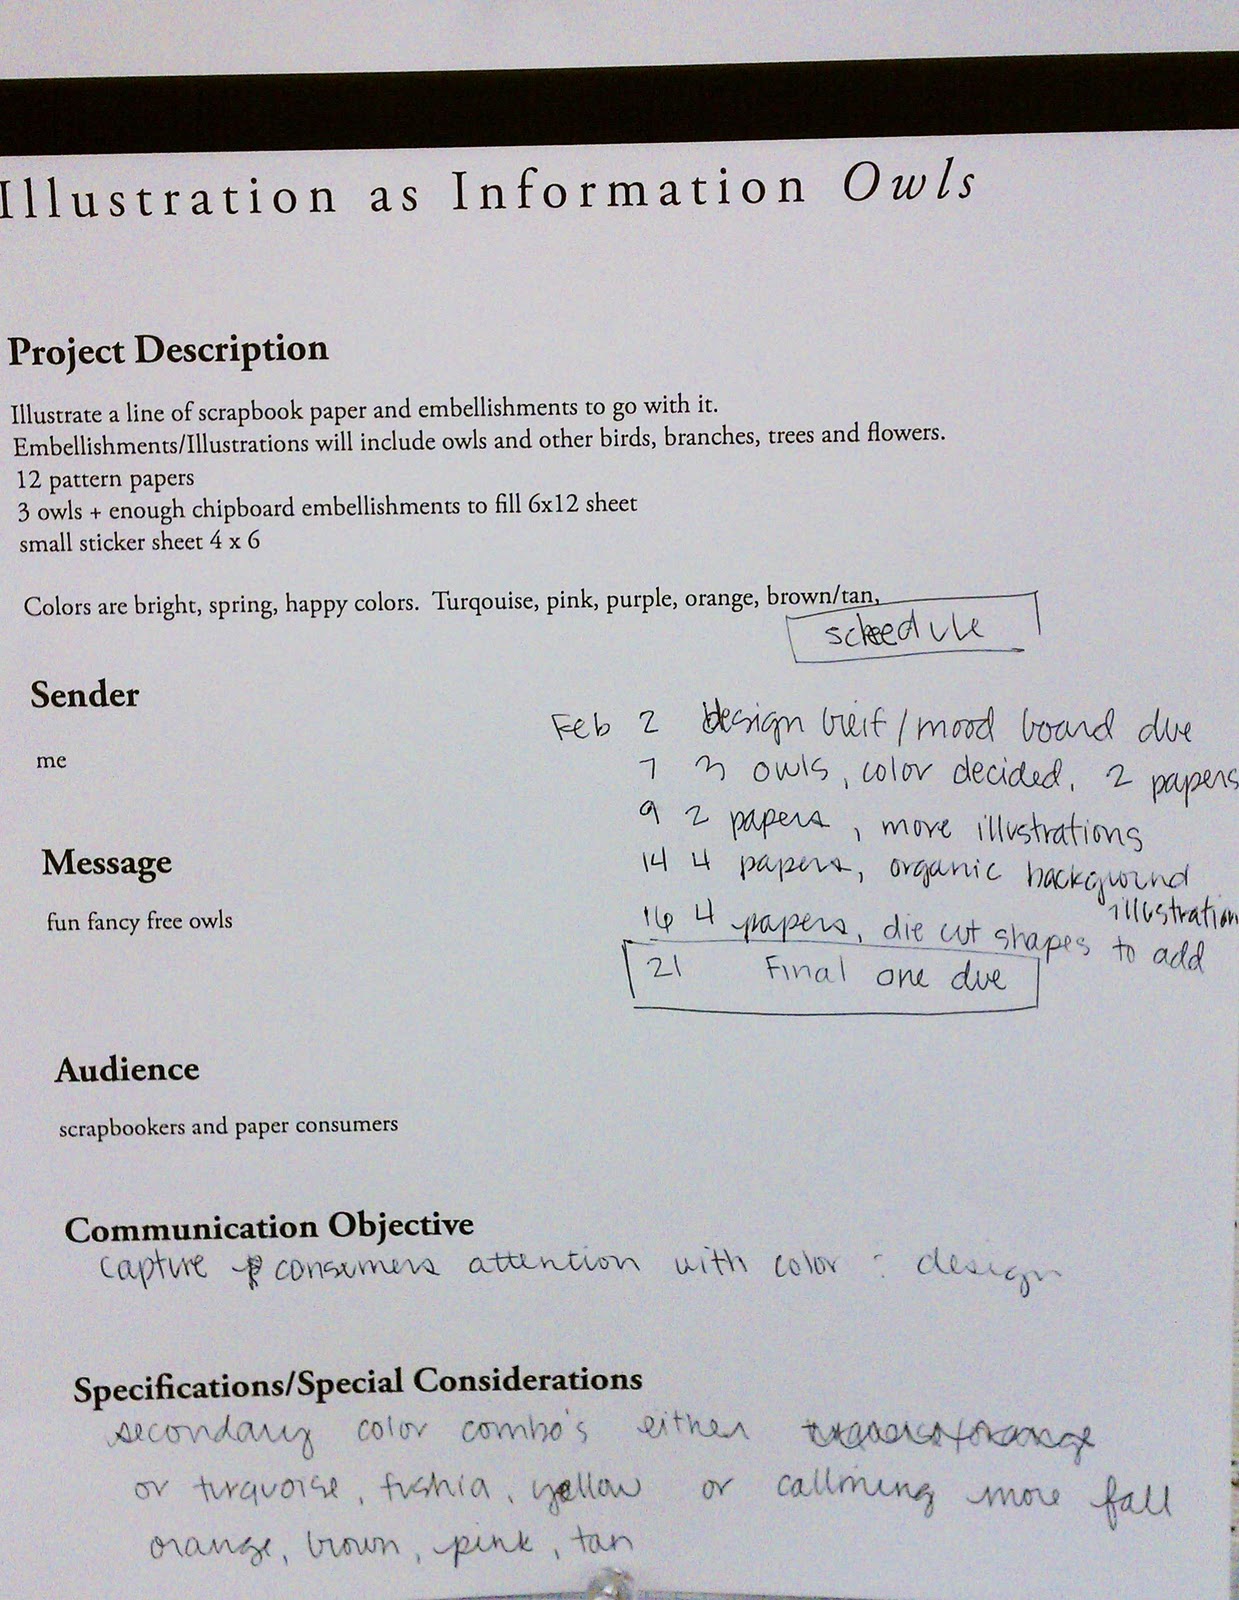 Illustration as Information Owls
Project Description
Illustrate a line of scrapbook paper and embellishments to go with it.
Embellishments/Illustrations will include owls and other birds, branches, trees and flowers.
12 pattern papers
3 owls + enough chipboard embellishments to fill 6x12 sheet
small sticker sheet 4 x 6
Colors are bright, spring, happy colors. Turqouise, pink, purple, orange, brown/tan,
schedule
Sender
me
Feb 2 design breif/mood board due
7 3 owls, color decided, 2 papers
9 2 papers, more illustrations
14 4 papers, organic background
illustration
16 4 papers, die cut shapes to add
21 Final one due
Message
fun fancy free owls
Audience
scrapbookers and paper consumers
Communication Objective
capture consumers attention with color : design
Specifications/Special Considerations
secondary color combo's either
or turquoise, fushia, yellow or callming more fall
orange, brown, pink, tan